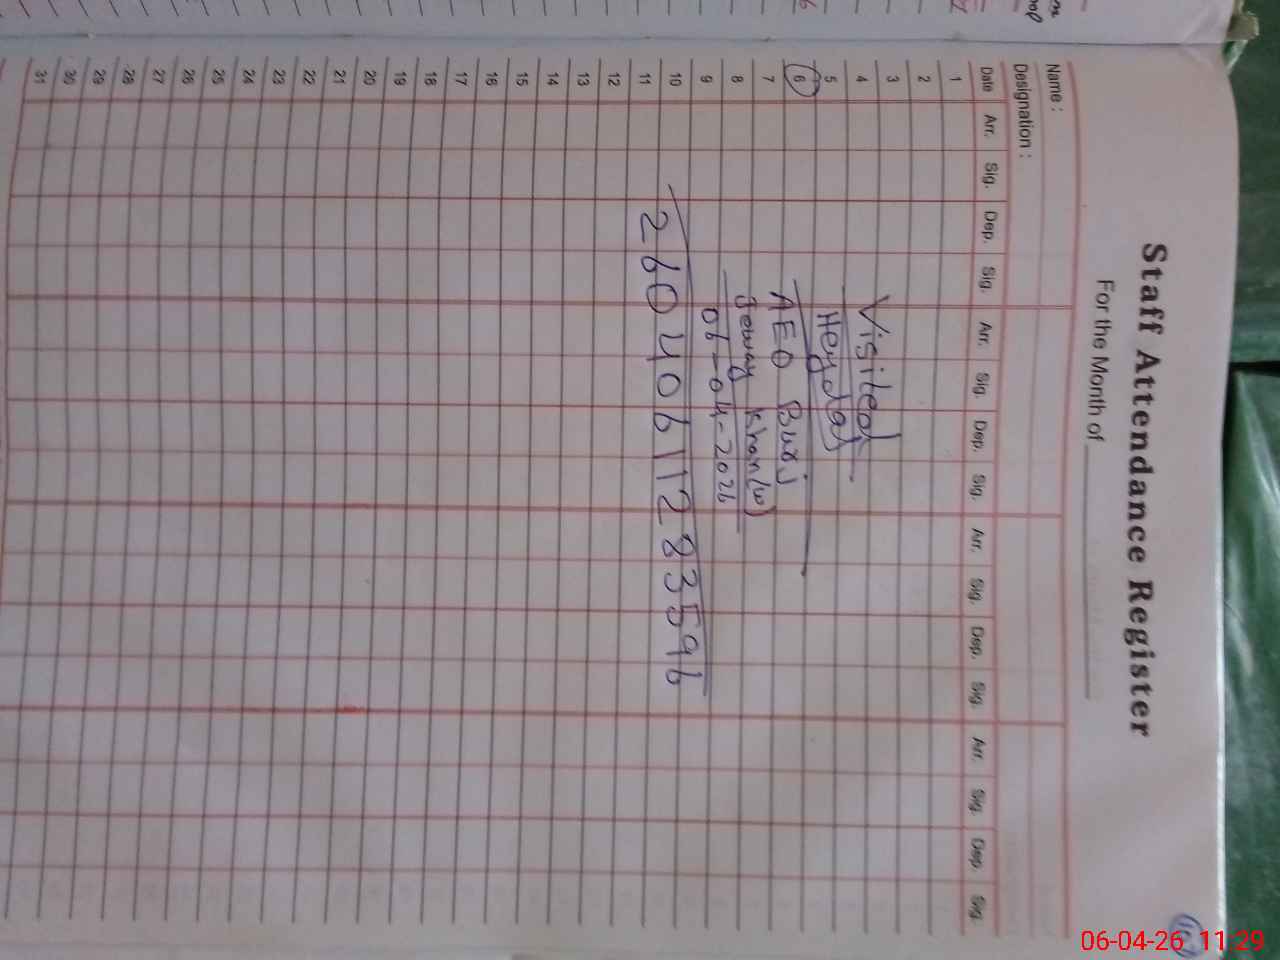 Staff Attendance Register
For the Month of
Name :
Designation :
Date Arr. Sig. Dep. Sig. Arr. Sig. Dep. Sig. Arr. Sig. Dep. Sig. Arr. Sig. Dep. Sig.
1
2
3
4
5
6
7
8
9
10
11
12
13
14
15
16
17
18
19
20
21
22
23
24
25
26
27
28
29
30
31
Visited
AEO Burj
Jeway Khan (w)
06-04-2026
26040611283596
06-04-26 11:29